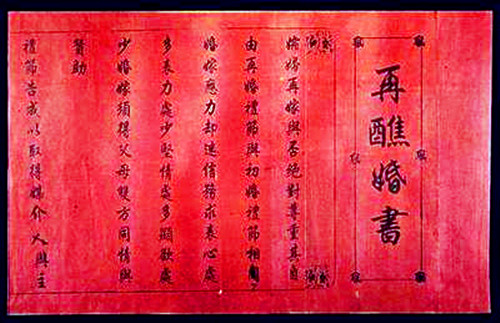 再醮婚書
孀婦再嫁與否絕對尊重其自
由再婚禮節與初婚禮節相同
婚嫁應力却速借務求衷心處
多表力處少堅情處多顯歡處
少婚嫁須得父母雙方同情與
贊助
禮節告成以取得媒介人與主